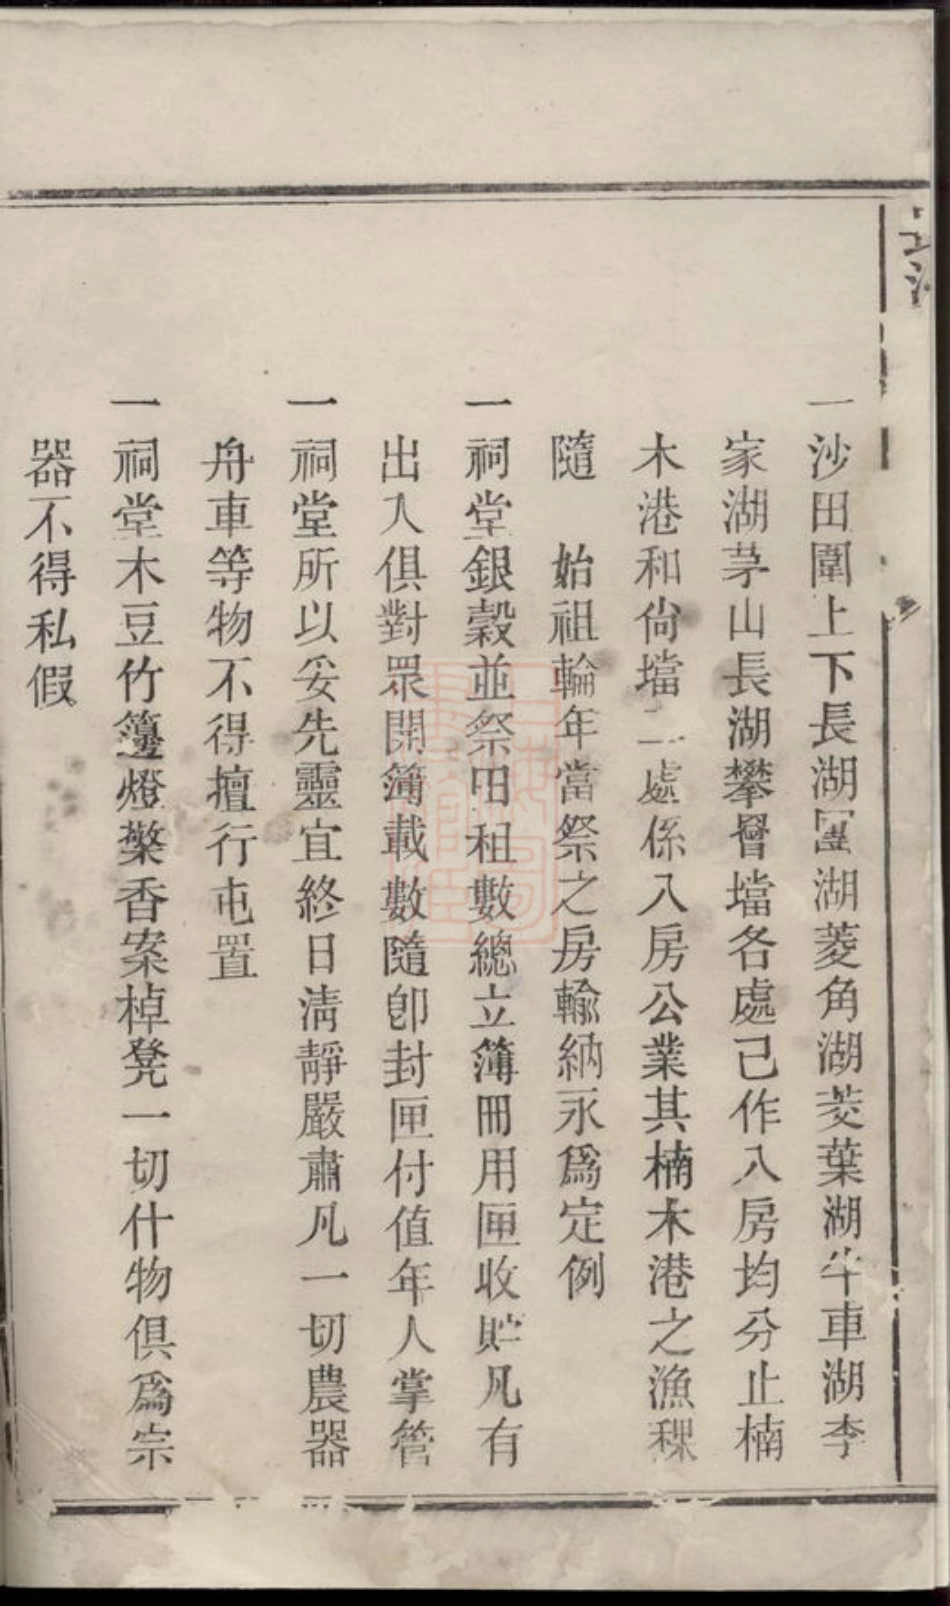 一沙田圍上下長湖團湖菱角湖菱葉湖牛車湖李
家湖茅山長湖攀罾壋各處己作八房均分止楠
木港和尙壋二處係八房公業其楠木港之漁稞
隨　始祖輪年當祭之房輸納永爲定例
一祠堂銀穀並祭田租數總立簿冊用匣收貯凡有
出入俱對眾開簿載數隨卽封匣付值年人掌管
一祠堂所以妥先靈宜終日淸靜嚴肅凡一切農器
舟車等物不得擅行屯置
一祠堂木豆竹籩燈檠香案棹凳一切什物俱爲宗
器不得私假